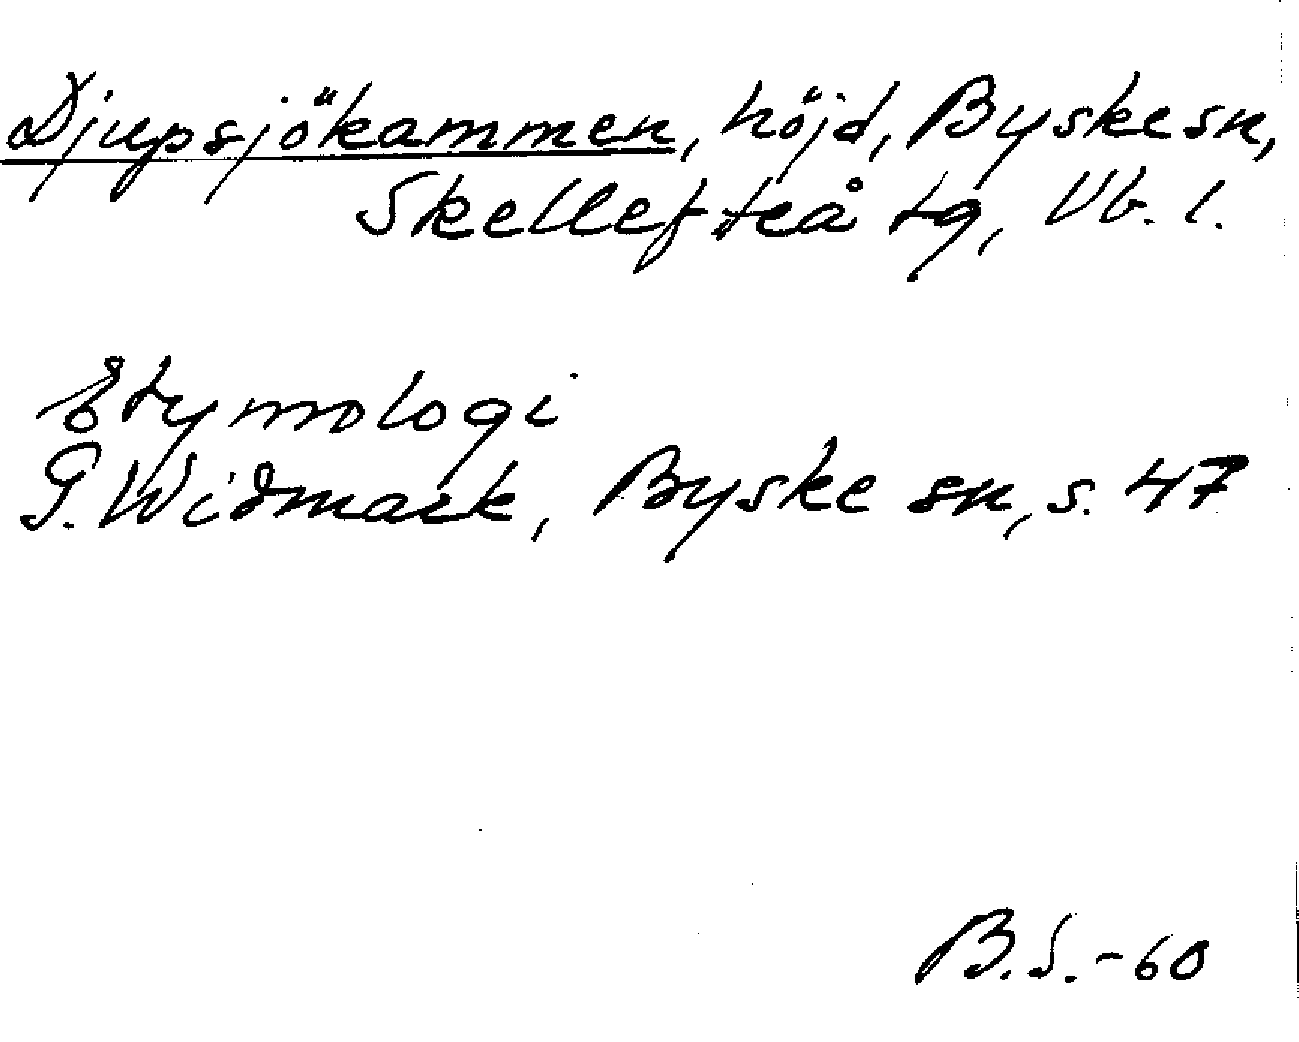 Djupsjökammen, höjd, Byske sn,
Skellefteå tg, Vb. l.
Etymologi
G. Widmark, Byske sn, s. 47
B.S.-60